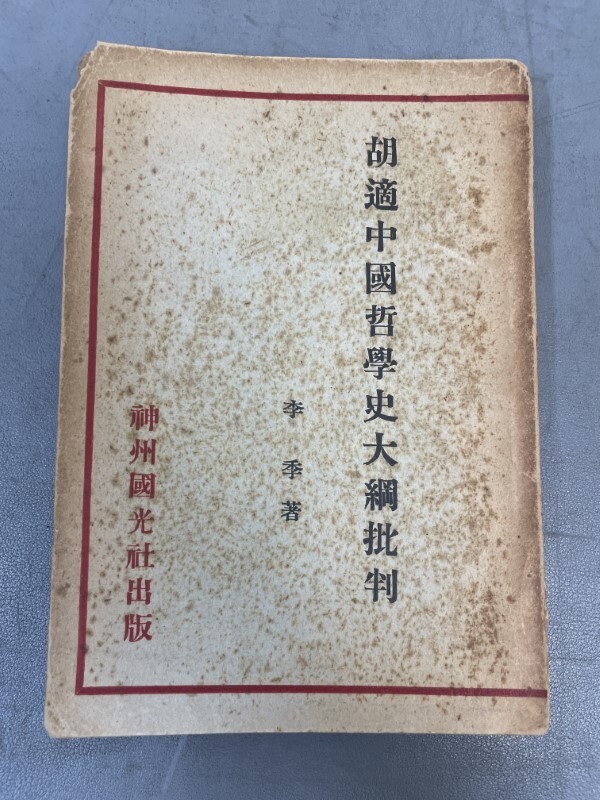 胡適中國哲學史大綱批判
李季著
神州國光社出版